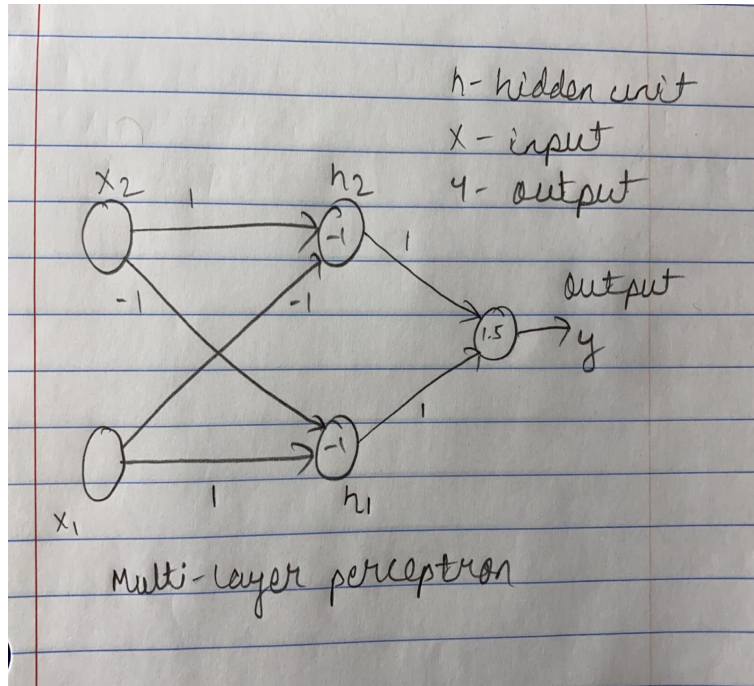 h- hidden unit
x - input
y - output
x2
1
h2
-1
1
-1
-1
output
1.5
y
1
-1
1
x1
h1
Multi-layer perceptron